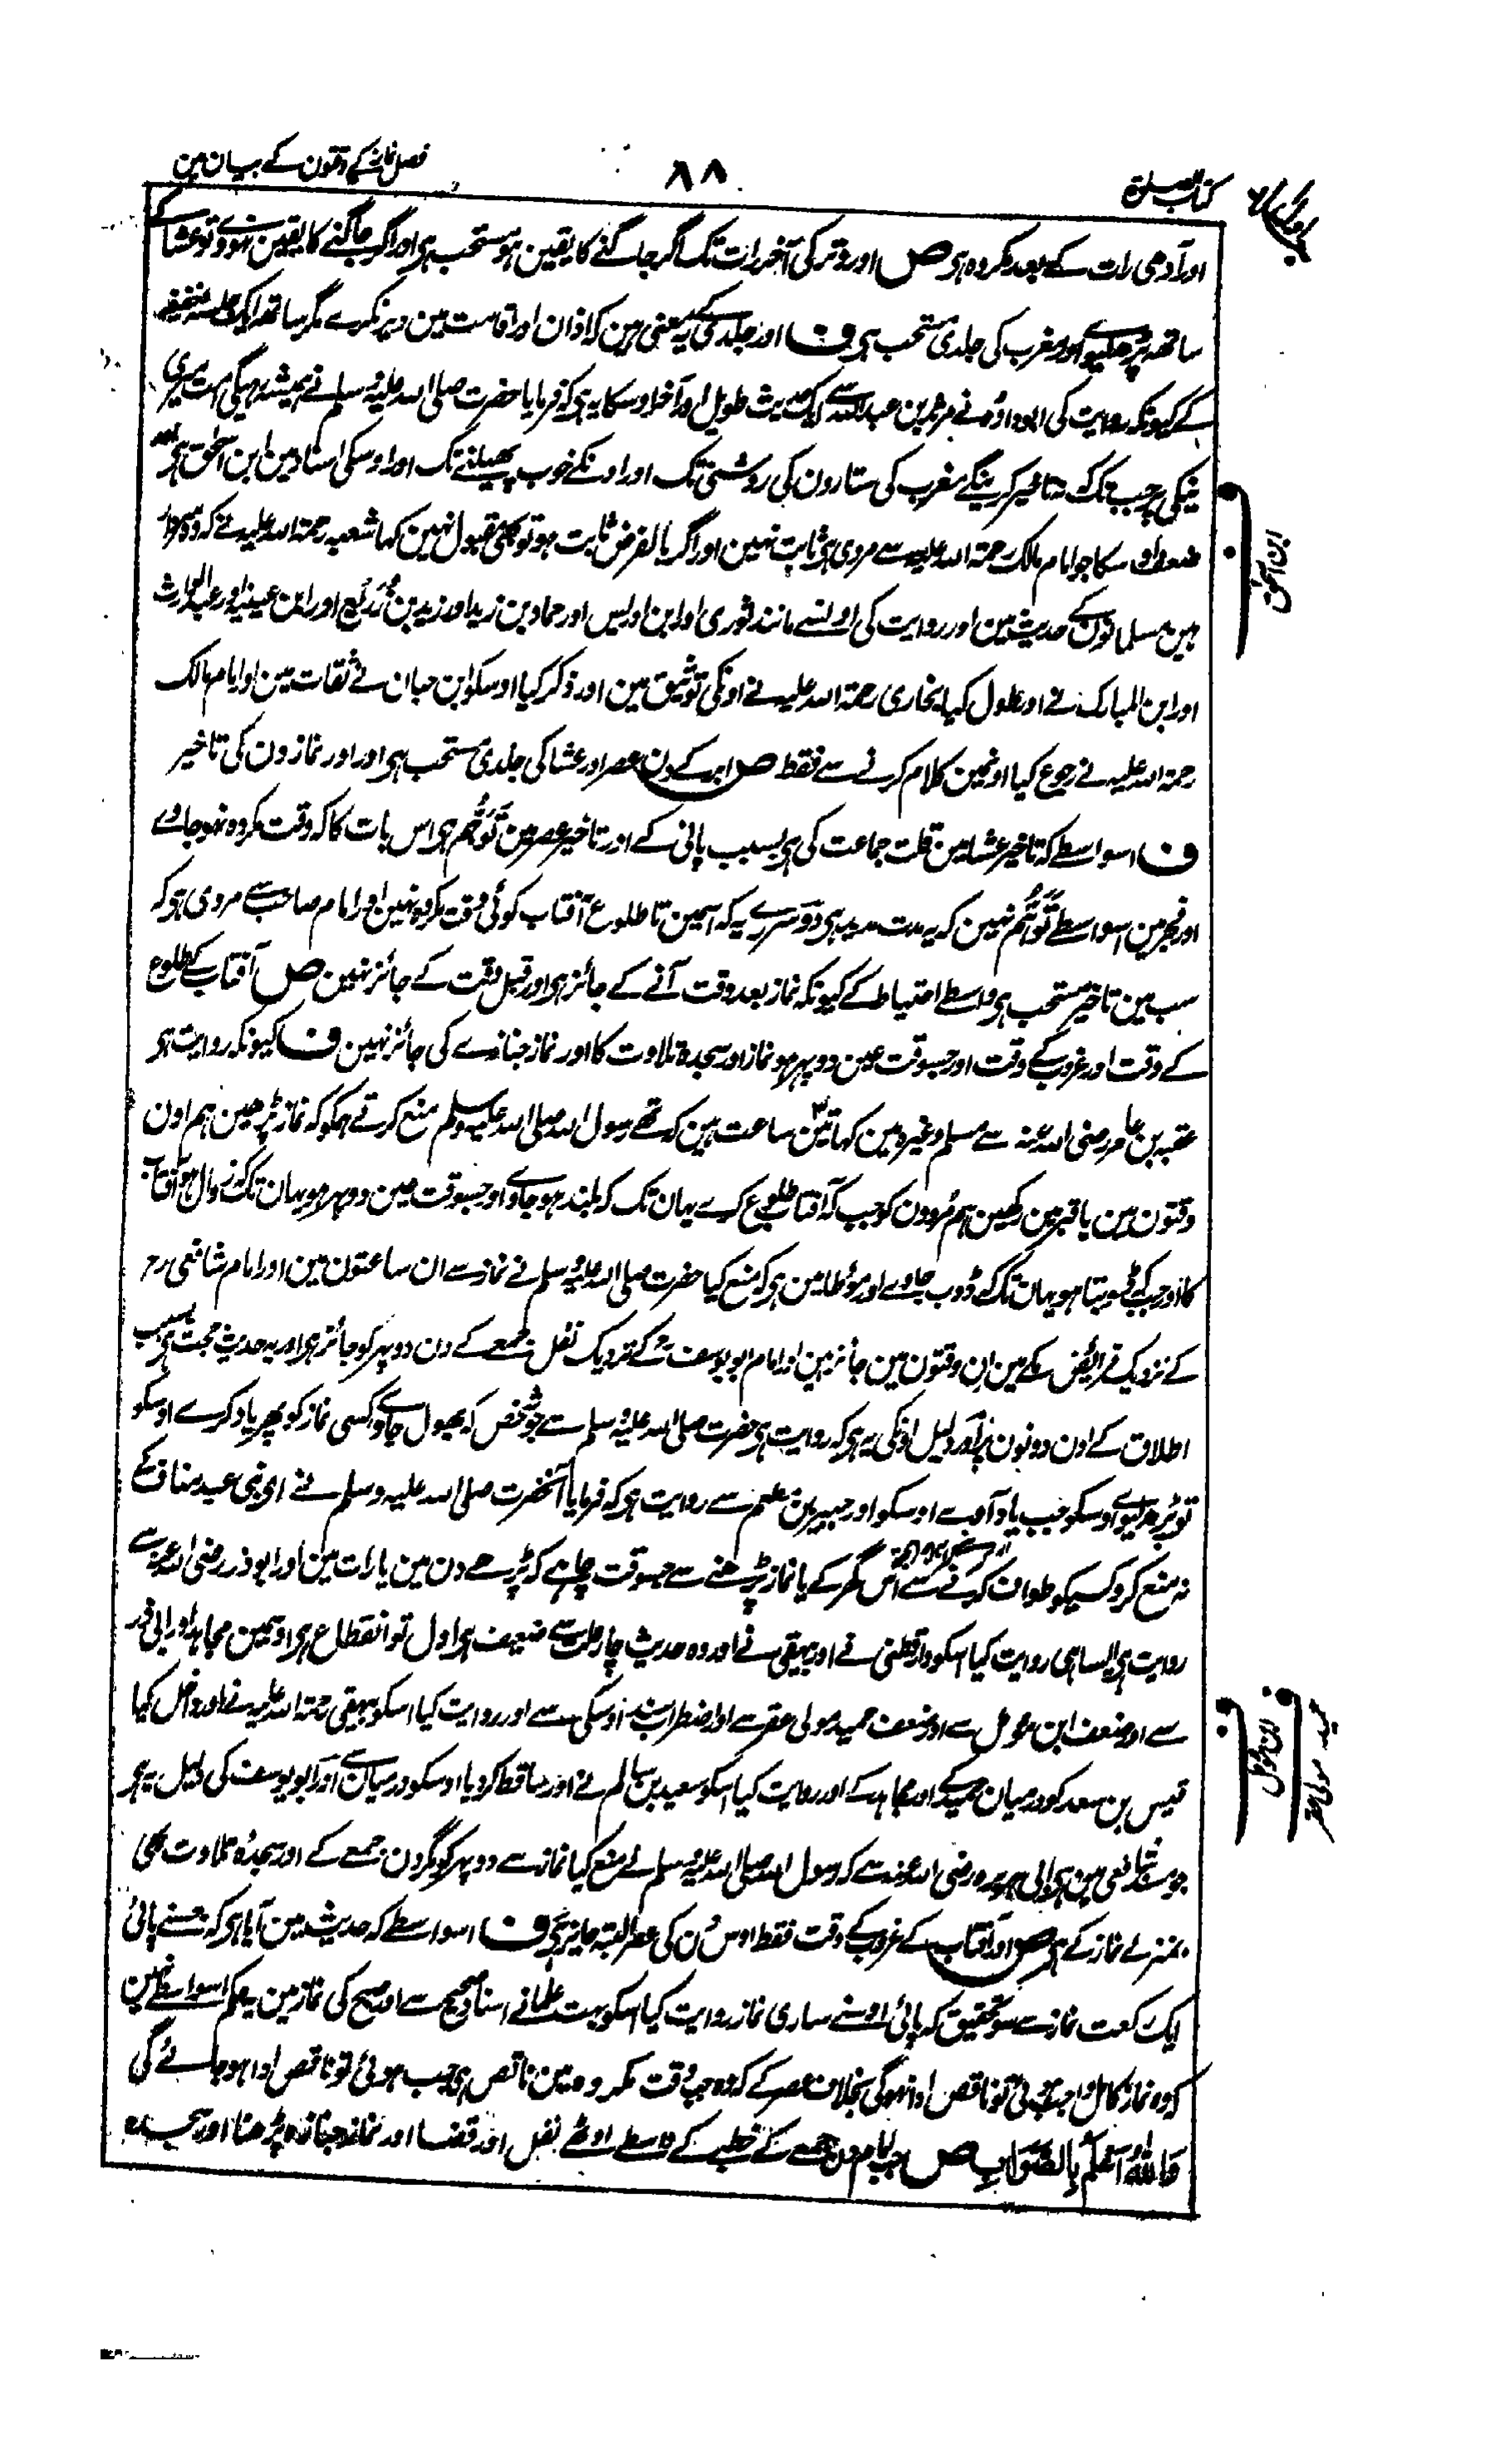 کتاب الصلوۃ
۸۸
فصل نماز کے وقتون کے بیان مین
اور آدھی رات کے بعد مکروہ ہی ص اور وتر کی آخر رات تک اگر جاگنے کا یقین ہو مستحب ہی اور اگر جاگنے کا یقین نہووے تو عشا کے
ساتھ پڑھ لیوے اور مغرب کی جلدی مستحب ہی ف اور جلدی کے یہ معنی ہین کہ اذان اور اقامت مین دیر نکرے مگر ساتھ ایک جلسہ خفیفہ
کے کیونکہ روایت کی ابو داؤد نے مرثد بن عبداللہ سے ایک حدیث طویل اور آخر اوسکا یہ ہی کہ فرمایا حضرت صلی اللہ علیہ وسلم نے ہمیشہ رہیگی امت میری
نیکی پر جب تک کہ نہ تاخیر کرینگے مغرب کی ستارون کی روشنی تک اور اونکے خوب پھیلنے تک اور اوسکی اسناد مین ابن اسحٰق ہی اور
ضعف اوسکا جو امام مالک رحمۃ اللہ علیہ سے مروی ہی ثابت نہین اور اگر بالفرض ثابت ہو تو بھی مقبول نہین کہا شعبہ رحمۃ اللہ علیہ نے کہ وہ سردار
ہین مسلمانون کے حدیث مین اور روایت کی اونسے مانند ثوری اور ابن ادریس اور حماد بن زید اور زید بن زریع اور ابن عیینہ اور عبدالوارث
اور ابن المبارک نے اور طول کیا بخاری رحمۃ اللہ علیہ نے اونکی توثیق مین اور ذکر کیا اوسکو ابن حبان نے ثقات مین اور امام مالک
رحمۃ اللہ علیہ نے رجوع کیا اونمین کلام کرنے سے فقط ص ابر کے دن عصر اور عشا کی جلدی مستحب ہی اور اور نمازون کی تاخیر
ف اسواسطے کہ تاخیر عشا مین قلت جماعت کی ہی بسبب پانی کے اور تاخیر عصر مین توہم ہی اس بات کا کہ وقت مکروہ نہوجاوے
اور فجر مین اسواسطے توہم نہین کہ یہ مدت مدید ہی دوسرے یہ کہ اسمین تا طلوع آفتاب کوئی وقت مکروہ نہین اور امام صاحب سے مروی ہی کہ
سب مین تاخیر مستحب ہی واسطے احتیاط کے کیونکہ نماز بعد وقت آنے کے جائز ہی اور قبل وقت کے جائز نہین ص آفتاب کے طلوع
کے وقت اور غروب کے وقت اور جسوقت عین دوپہر ہو نماز اور سجدہ تلاوت کا اور نماز جنازے کی جائز نہین ف کیونکہ روایت ہی
عقبہ بن عامر رضی اللہ عنہ سے مسلم وغیرہ مین کہا تین ساعت ہین کہ تھے رسول اللہ صلی اللہ علیہ وسلم منع کرتے ہمکو کہ نماز پڑھین ہم اون
وقتون مین یا قبر مین رکھین ہم مُردون کو جب کہ آفتاب طلوع کرے یہان تک کہ بلند ہو جاوے اور جسوقت عین دوپہر ہو یہان تک کہ زوال ہو آفتاب
کا اور جب کہ ڈوبتا ہو یہان تک کہ ڈوب جاوے اور موطا مین ہی کہ منع کیا حضرت صلی اللہ علیہ وسلم نے نماز سے ان ساعتون مین اور امام شافعی رح
کے نزدیک فرائض مکے مین ان وقتون مین جائز ہین اور امام ابو یوسف رح کے نزدیک نفل جمعے کے دن دوپہر کو جائز ہی اور یہ حدیث حجت ہی بسبب
اطلاق کے اون دونون پر اور دلیل اونکی یہ ہی کہ روایت ہی حضرت صلی اللہ علیہ وسلم سے جو شخص کہ بھول جاوے کسی نماز کو پھر یاد کرے اوسکو
تو پڑھ لیوے اوسکو جب یاد آوے اوسکو اور جبیر بن مطعم سے روایت ہی کہ فرمایا آنحضرت صلی اللہ علیہ وسلم نے ای بنی عبد مناف کے
نہ منع کرو کسیکو طواف کرنے سے اس گھر کے یا نماز پڑھنے سے جسوقت چاہے کہ پڑھے دن مین یا رات مین اور ابو ذر رضی اللہ عنہ سے
روایت ہی ایسا ہی روایت کیا اسکو دارقطنی نے اور بیہقی نے اور وہ حدیث چار علت سے ضعیف ہی اول تو انقطاع ہی اوسمین مجاہد اور ابی ذر
سے اور ضعف ابن مؤمل سے اور ضعف حمید مولی عفرا سے اور اضطراب سند اوسکی سے اور روایت کیا اسکو بیہقی رحمۃ اللہ علیہ نے اور داخل کیا
قیس بن سعد کو درمیان حمید کے اور مجاہد کے اور روایت کیا اسکو سعید بن سالم نے اور ساقط کر دیا اوسکو درمیان سے اور ابو یوسف کی دلیل یہ ہی
جو مسند شافعی مین ہی ابی ہریرہ رضی اللہ عنہ سے کہ رسول اللہ صلی اللہ علیہ وسلم نے منع کیا نماز سے دوپہر کو مگر دن جمعے کے اور سجدہ تلاوت بھی
بمنزلے نماز کے ہی ص اور آفتاب کے غروب کے وقت فقط اوس دن کی عصر البتہ جایز ہی ف اسواسطے کہ حدیث مین آیا ہی کہ جسنے پائی
ایک رکعت نماز سے سو تحقیق کہ پائی اوسنے ساری نماز روایت کیا اسکو بہت علما نے اسناد صحیح سے اور صبح کی نماز مین یہ حکم اسواسطے نہین
کہ وہ نماز کامل واجب ہوئی تو ناقص ادا نہوگی بخلاف عصر کے کہ وہ جب وقت مکروہ مین ناقص ہی جب ہوئی تو ناقص ادا ہو جائے گی
وَاللّٰهُ اَعْلَمُ بِالصَّوَابِ ص جب امام دن جمعے کے خطبے کے واسطے اوٹھے نفل اور قضا اور نماز جنازہ پڑھنا اور سجدہ
ابن اسحٰق
ابن مؤمل
حمید مولی عفرا